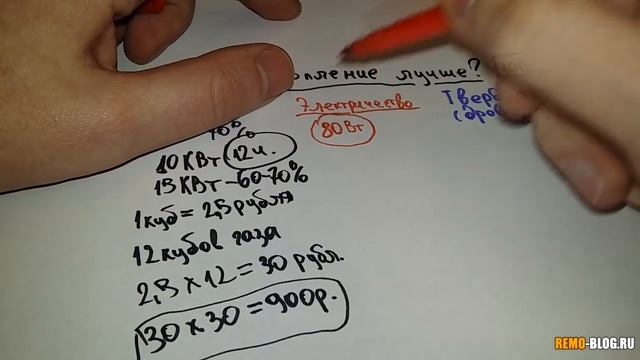 лучше?
Электричество
80 Вт
70%
10 КВт 12 ч.
15 КВт - 60-70%
1 куб = 2,5 рубля
12 кубов газа
2,5 × 12 = 30 рубл.
30 × 30 = 900р.
REMO-BLOG.RU